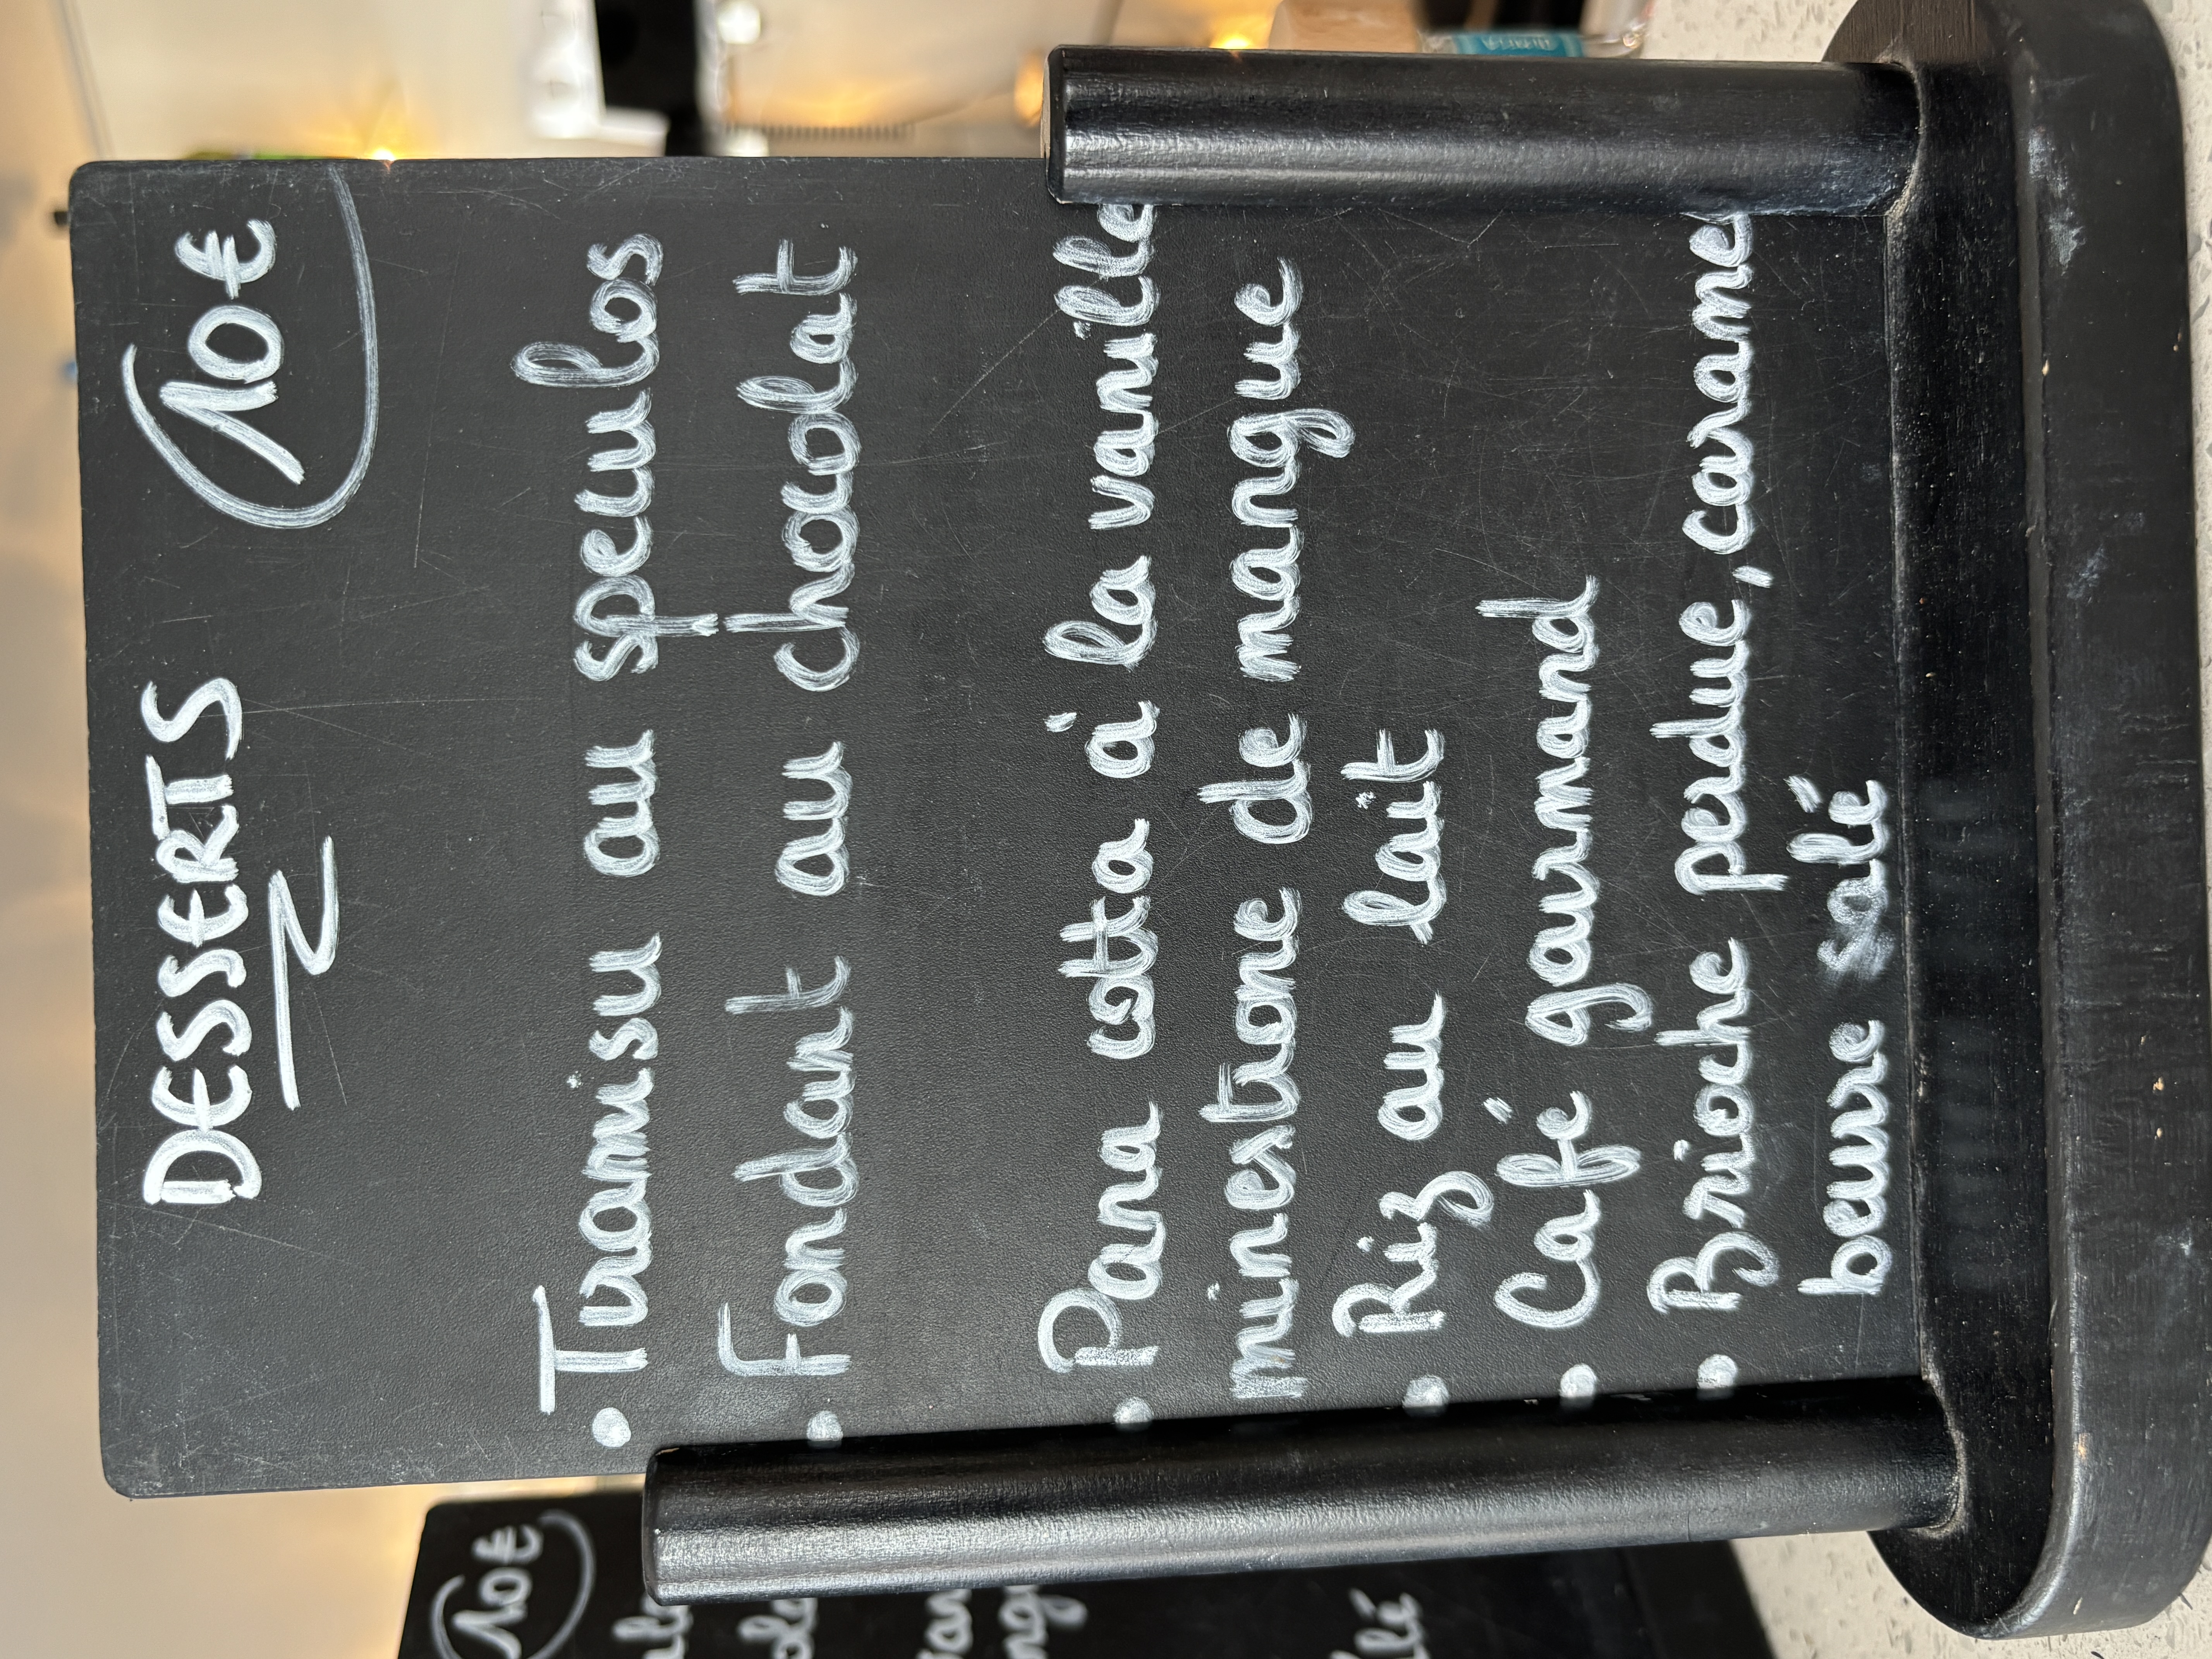 DESSERTS 10€
• Tiramisu au speculos
• Fondant au chocolat
• Pana cotta à la vanille
minestrone de mangue
• Riz au lait
• Café gourmand
• Brioche perdue, caramel
beurre salé
10€